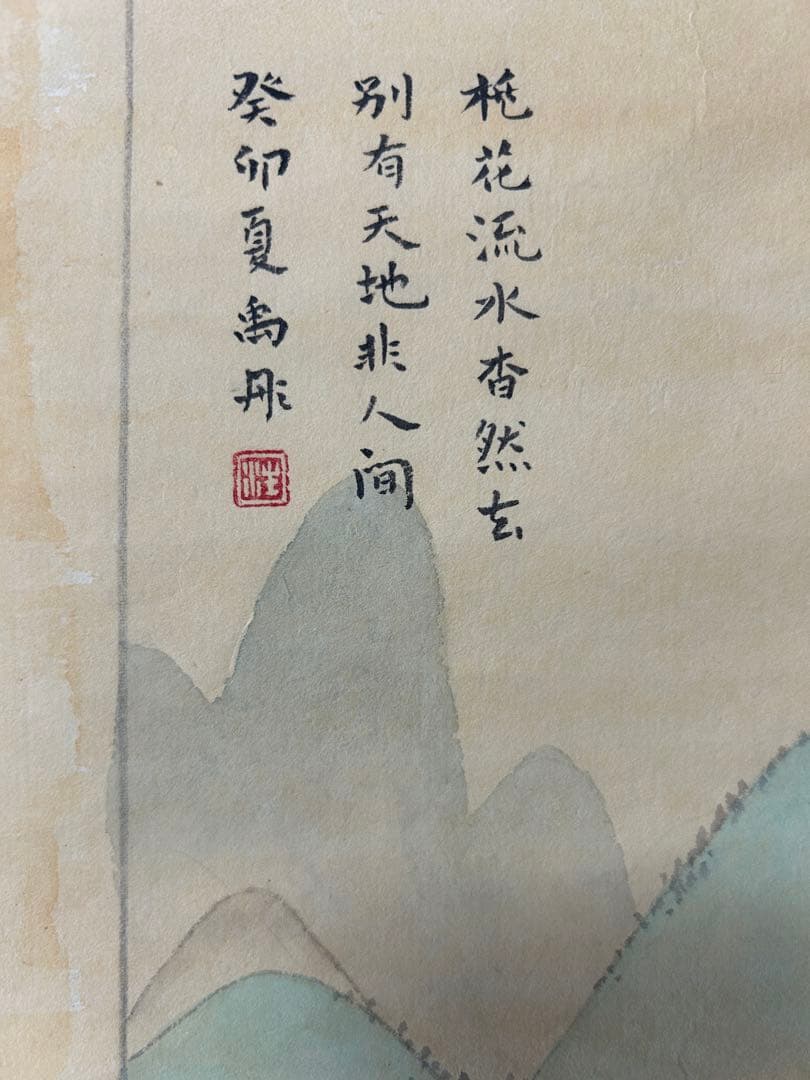 桃花流水杳然去
别有天地非人间
癸卯夏禹彤